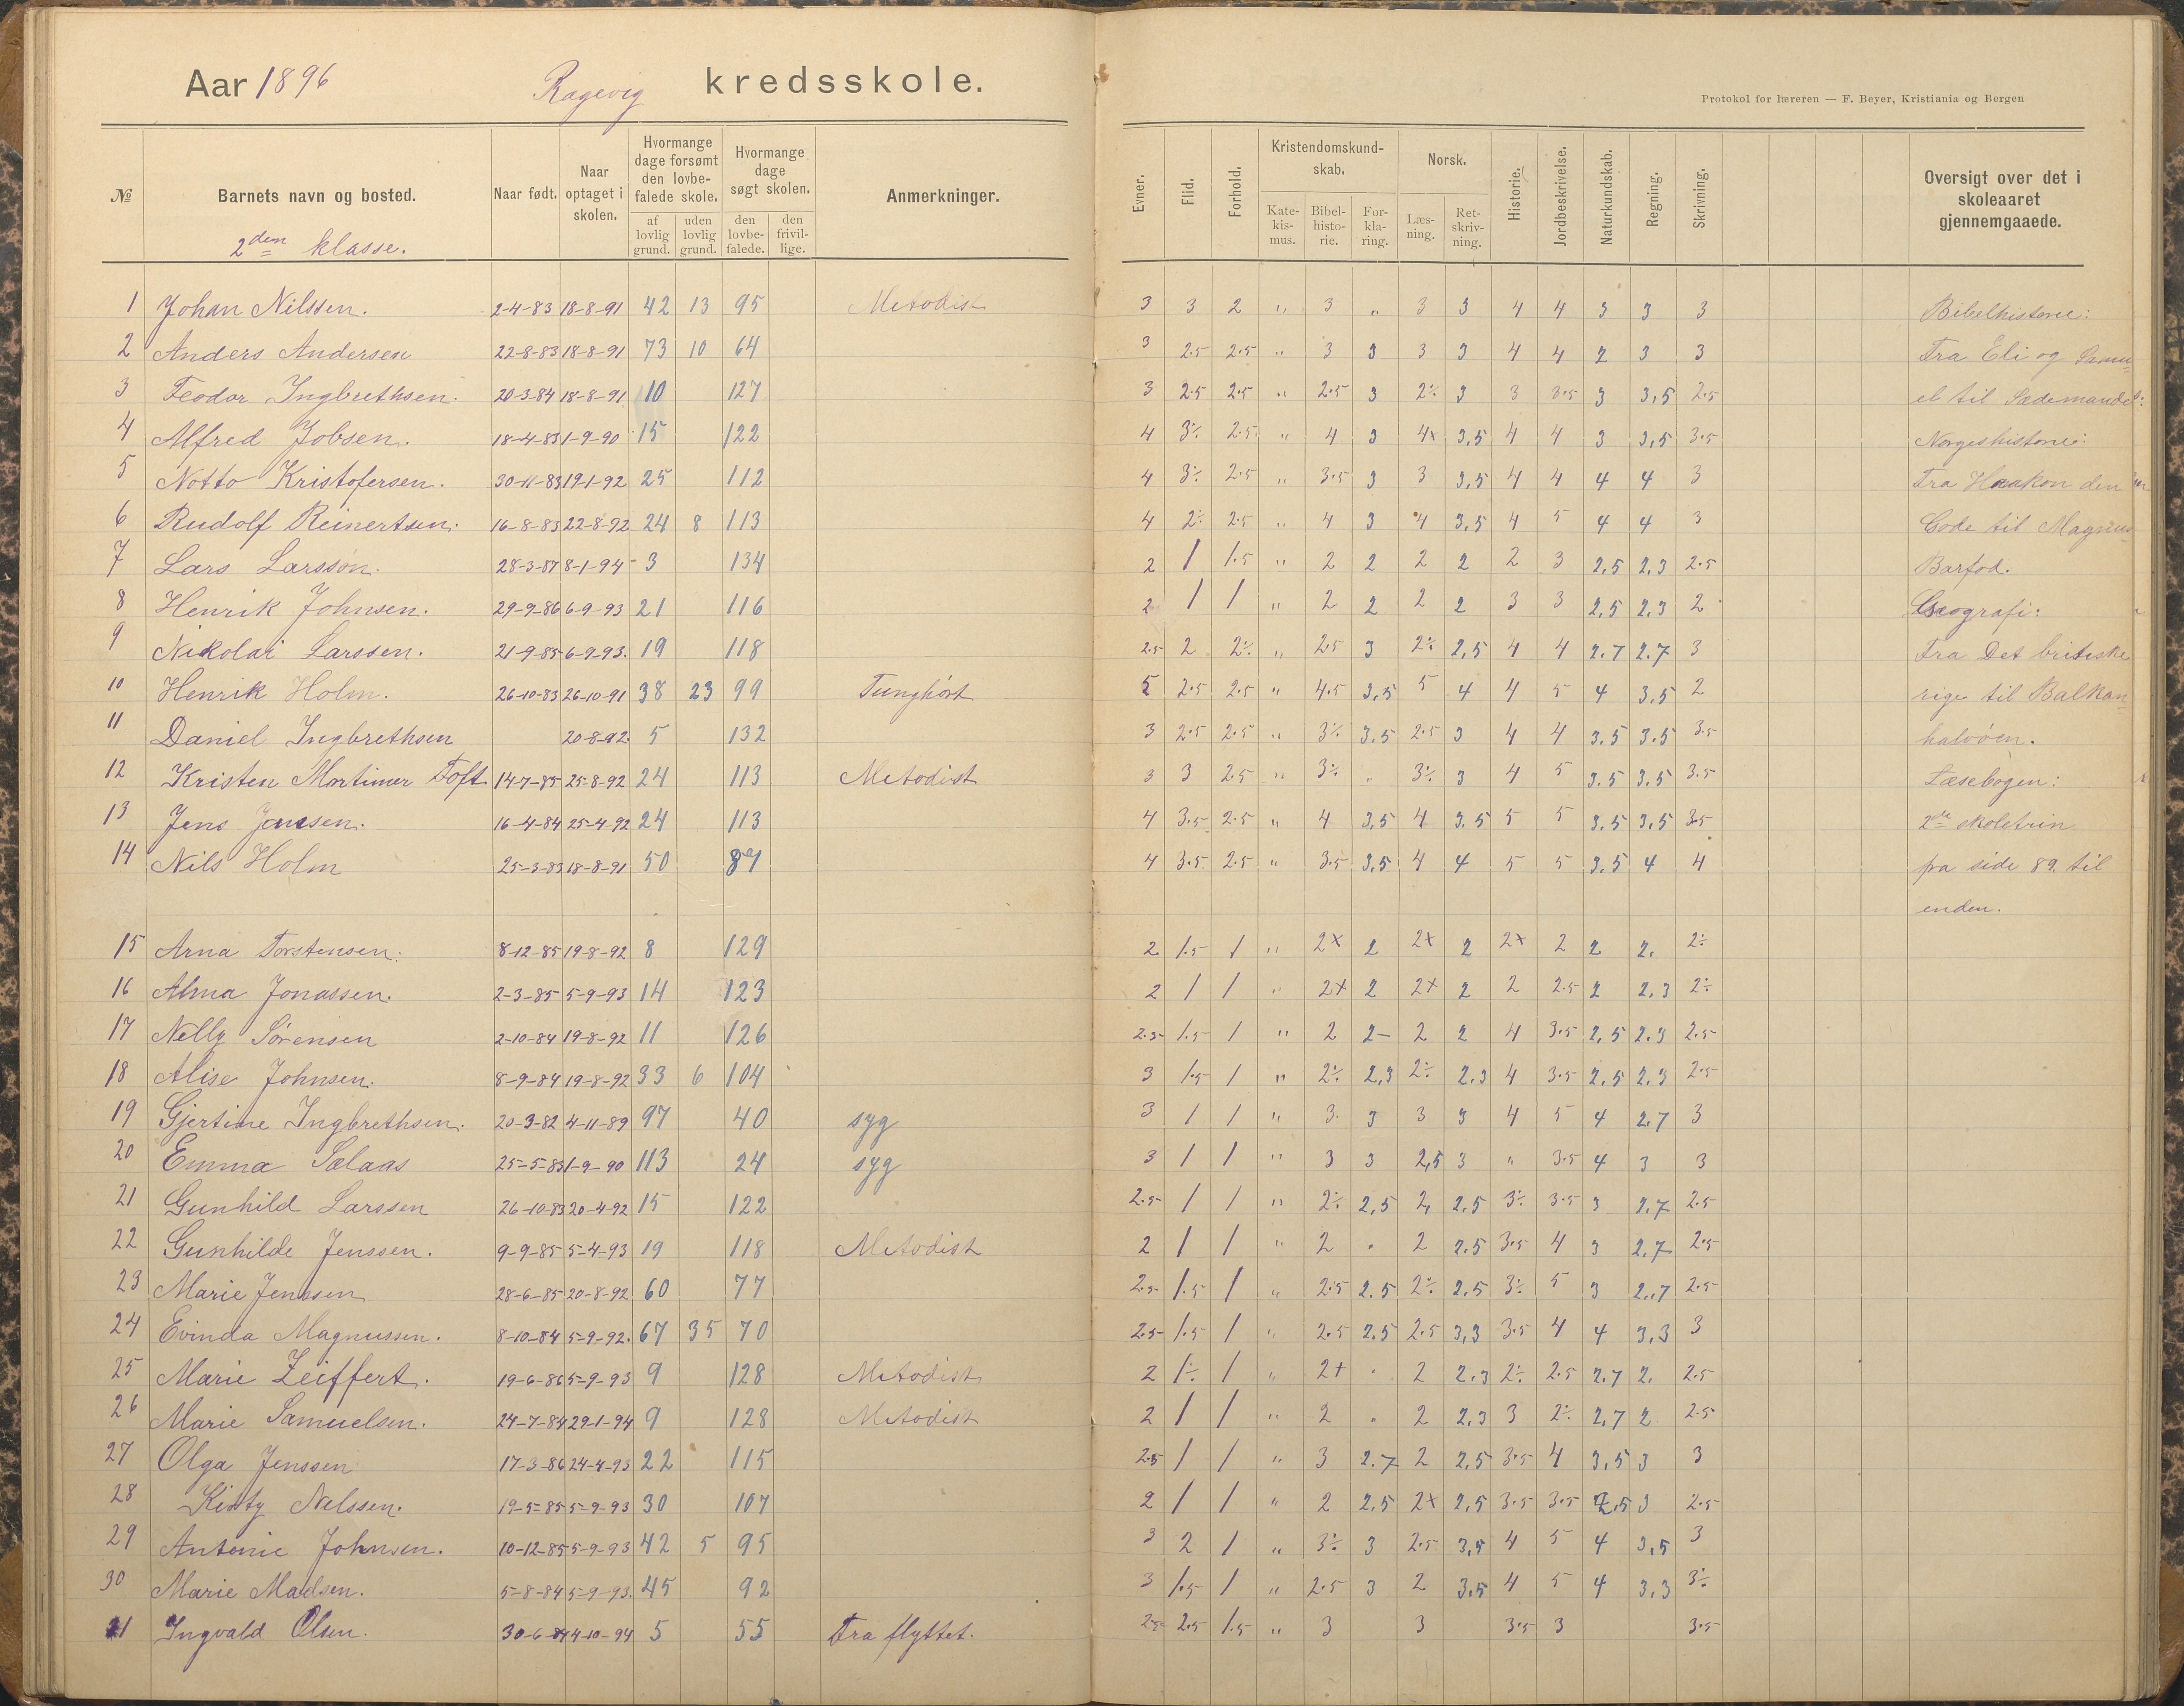 Aar 1896 Ragevig kredsskole.
Protokol for læreren — F. Beyer, Kristiania og Bergen
№ Barnets navn og bosted. Naar født. Naar optaget i skolen. Hvormange dage forsømt den lovbefalede skole. af lovlig grund. uden lovlig grund. Hvormange dage søgt skolen. den lovbefalede. den frivillige. Anmerkninger.
Evner. Flid. Forhold. Kristendomskundskab. Katekismus. Bibelhistorie. Forklaring. Norsk. Læsning. Retskrivning. Historie. Jordbeskrivelse. Naturkundskab. Regning. Skrivning. Oversigt over det i skoleaaret gjennemgaaede.
2den klasse.
1 Johan Nilssen. 2-4-83 18-8-91 42 13 95 Metodist 3 3 2 " 3 " 3 3 4 4 3 3 3 Bibelhistorie:
2 Anders Andersen 22-8-83 18-8-91 73 10 64 3 2.5 2.5 " 3 3 3 3 4 4 2 3 3 Fra Eli og Samu-
3 Teodor Ingbrethsen. 20-3-84 18-8-91 10 127 3 2.5 2.5 " 2.5 3 2÷ 3 3 3.5 3 3,5 2.5 el til Sædemanden:
4 Alfred Jobsen. 18-4-83 1-9-90 15 122 4 3÷ 2.5 " 4 3 4x 3,5 4 4 3 3,5 3.5 Norgeshistorie:
5 Notto Kristofersen. 30-11-83 19-1-92 25 112 4 3÷ 2.5 " 3.5 3 3 3,5 4 4 4 4 3 Fra Haakon den
6 Rudolf Reinertsen. 16-8-83 22-8-92 24 8 113 4 2÷ 2.5 " 4 3 4 3,5 4 5 4 4 3 Gode til Magnus
7 Lars Larsson. 28-3-87 8-1-94 3 134 2 1 1.5 " 2 2 2 2 2 3 2,5 2,3 2.5 Barfod.
8 Henrik Johnsen. 29-9-86 6-9-93 21 116 2 1 1 " 2 2 2 2 3 3 2,5 2,3 2 Geografi:
9 Nikolai Larssen. 21-9-85 6-9-93. 19 118 2.5 2 2÷ " 2.5 3 2÷ 2,5 4 4 2.7 2.7 3 Fra Det britiske
10 Henrik Holm. 26-10-83 26-10-91 38 23 99 Tunghørt 5 2.5 2.5 " 4.5 3,5 5 4 4 5 4 3,5 2 rige til Balkan-
11 Daniel Ingbrethsen 20-8-92. 5 132 3 2.5 2.5 " 3÷ 3,5 2.5 3 4 4 3.5 3.5 3.5 halvøen.
12 Kristen Mortimer Toft 14-7-85 25-8-92 24 113 Metodist 3 3 2.5 " 3÷ " 3÷ 3 4 5 3.5 3.5 3.5 Læsebogen:
13 Jens Jenssen. 16-4-84 25-4-92 24 113 4 3.5 2.5 " 4 3,5 4 3.5 5 5 3,5 3,5 3.5 2de skoletrin
14 Nils Holm 25-3-83 18-8-91 50 87 4 3.5 2.5 " 3.5 3,5 4 4 5 5 3,5 4 4 fra side 89. til
enden.
15 Arna Torstensen. 8-12-85 19-8-92 8 129 2 1.5 1 " 2x 2 2x 2 2x 2 2 2. 2÷
16 Alma Jonassen. 2-3-85 5-9-93 14 123 2 1 1 " 2x 2 2x 2 2 2.5 2 2,3 2÷
17 Nelly Sørensen 2-10-84 19-8-92 11 126 2.5 1.5 1 " 2 2- 2 2 4 3.5 2,5 2.3 2.5
18 Alise Johnsen. 8-9-84 19-8-92 33 6 104 3 1.5 1 " 2÷ 2,3 2÷ 2.3 4 3.5 2,5 2.3 2.5
19 Gjertine Ingbrethsen. 20-3-82 4-11-89 97 40 syg 3 1 1 " 3 3 3 3 4 5 4 2,7 3
20 Emma Sælaas 25-5-83 1-9-90 113 24 syg 3 1 1 " 3 3 2,5 3 " 3.5 4 3 3
21 Gunhild Larssen 26-10-83 20-4-92 15 122 2.5 1 1 " 2÷ 2,5 2, 2.5 3÷ 3.5 3 2.7 2.5
22 Gunhilde Jenssen. 9-9-85 5-4-93 19 118 Metodist 2 1 1 " 2 " 2 2.5 3.5 4 3 2.7 2.5
23 Marie Jenssen 28-6-85 20-8-92 60 77 2.5 1.5 1 " 2.5 2.5 2÷ 2,5 3÷ 5 3 2.,7 2.5
24 Evinda Magnussen. 8-10-84 5-9-92. 67 35 70 2.5 1.5 1 " 2.5 2.5 2.5 3,3 3.5 4 4 3,3 3
25 Marie Zeiffert. 19-6-86 5-9-93 9 128 Metodist 2 1÷ 1 " 2+ " 2 2.3 2÷ 2.5 2.7 2. 2.5
26 Marie Samuelsen. 24-7-84 29-1-94 9 128 Metodist 2 1 1 " 2 " 2 2,3 3 2÷ 2,7 2 2.5
27 Olga Jenssen 17-3-86 24-4-93 22 115 2.5 1 1 " 3 2.7 2 2,5 3.5 4 3,5 3 3
28 Kirsty Nilssen. 19-5-85 5-9-93 30 107 2 1 1 " 2 2,5 2x 2,5 3.5 3.5 2,5 3 2.5
29 Antonie Johnsen. 10-12-85 5-9-93 42 5 95 3 2 1 " 3÷ 3 2.5 3,5 4 5 4 3,5 3
30 Marie Madsen. 5-8-84 5-9-93. 45 92 3 1.5 1 " 2.5 3 2 3,5 4 5 4 3,3 3÷
31 Ingvald Olsen. 30-6-84 4-10-94 5 55 Fra flyttet. 2.5 2.5 1.5 " 3 3 3.5 3 3.5